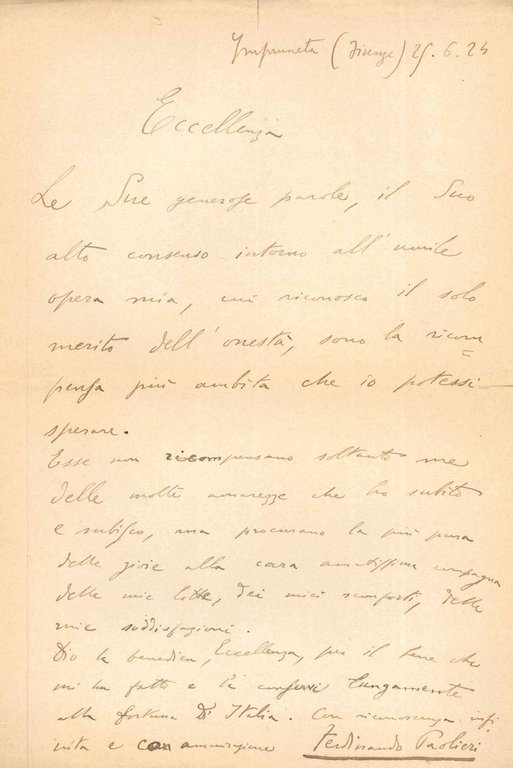 Impruneta (Firenze) 25. 6. 26
Eccellenza
Le Sue generose parole, il Suo
alto consenso intorno all'umile
opera mia, cui riconosco il solo
merito dell'onestà, sono la ricom=
pensa più ambita che io potessi
sperare.
Esse non ricompensano soltanto me
delle molte amarezze che ho subito
e subisco, ma procurano la più pura
delle gioie alla cara amatissima compagna
delle mie lotte, dei miei sconforti, delle
mie soddisfazioni.
Dio la benedica, Eccellenza, per il bene che
mi ha fatto e la conservi lungamente
alla fortuna d'Italia. Con riconoscenza infi
nita e con ammirazione Ferdinando Paolieri